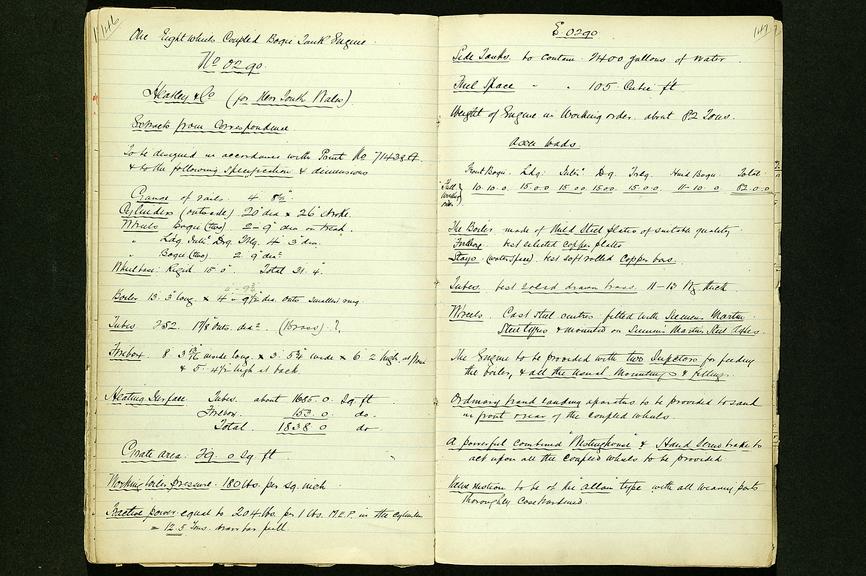 146
One Eight Wheels Coupled Bogie Tank Engine.
No 0290.
& Co (for New South Wales)
Extracts from Correspondence
To be designed in accordance with Print No 71438A.
& to the following specification & dimensions
Gauge of rails. 4' 8½"
Cylinders (outside) 20" dia x 26" stroke.
Wheels Bogie (two) 2'-9" dia on tread.
" Ldg. Intr. Drg. Trlg. 4' 3" dia.
" Bogie (two) 2' 9" diar
Wheelbase. Rigid 15' 0" Total 31' 4".
Boiler 13' 3" long x 4' - 9½ dia. outs. smallest ring.
Tubes 252. 1⅞ outs. diar. (Brass) ?,
Firebox. 8' long. x 3' wide x 6' 2" high at front
& 5' 4½" high at back
Heating Surface. Tubes. about 1685.0 Sq ft
Firebox. 153.0 do.
Total. 1838.0 do
Grate area. 29.0 Sq. ft.
Working boiler pressure. 180 lbs. per sq. inch.
Tractive power equal to 204 lbs. per 1 lbs. M.E.P. in the cylinders
= 12.5 Tons. drawbar pull.
147
E 0290
Side Tanks. to contain 2400 gallons of water.
Fuel Space " " 105 Cubic ft
Weight of Engine in Working order. about 82 Tons.
Axle loads.
Front Bogie. Ldg. Intr. Dg. Trlg. Hind Bogie. Total
Full working order 10.10.0. 15.0.0 15.0.0 15.0.0 15.0.0. 11-10.0 82.0.0
The Boiler made of Mild Steel plates of suitable quality
Firebox. best selected copper plates
Stays (waterspace). best soft rolled Copper bars.
Tubes. best solid drawn brass. 11-13 thick.
Wheels. Cast steel centres fitted with Siemens Martin
Steel tyres & mounted on Siemens Martin Steel Axles.
The Engine to be provided with two Injectors for feeding
the boiler, & all the usual Mountings & fittings.
Ordinary hand sanding apparatus to be provided to sand
in front & rear of the coupled wheels.
A powerful combined "Westinghouse" & Hand Screw brake to
act upon all the coupled wheels to be provided
Valve motion to be of the allan type with all wearing parts
thoroughly casehardened.